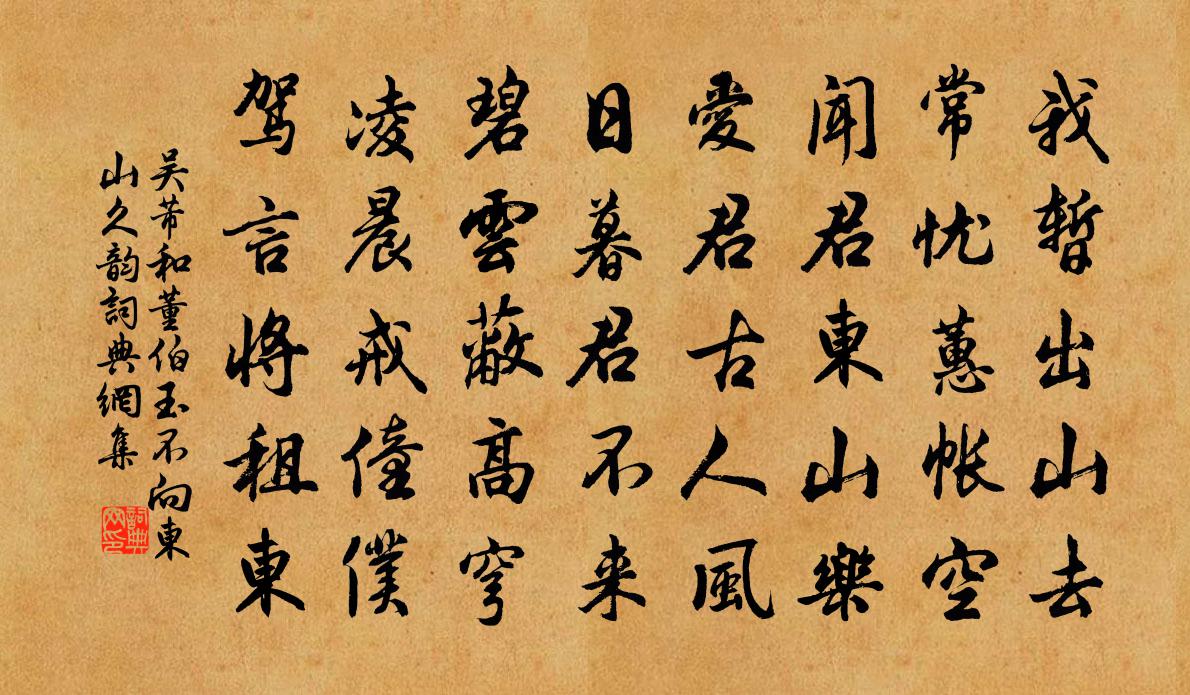 我暫出山去
常忧蕙帐空
聞君東山樂
愛君古人風
日暮君不来
碧雲蔽高穹
凌晨戒僮僕
駕言將租東
吴芾和董伯玉不向東
山久韵詞典網集
詞典网印